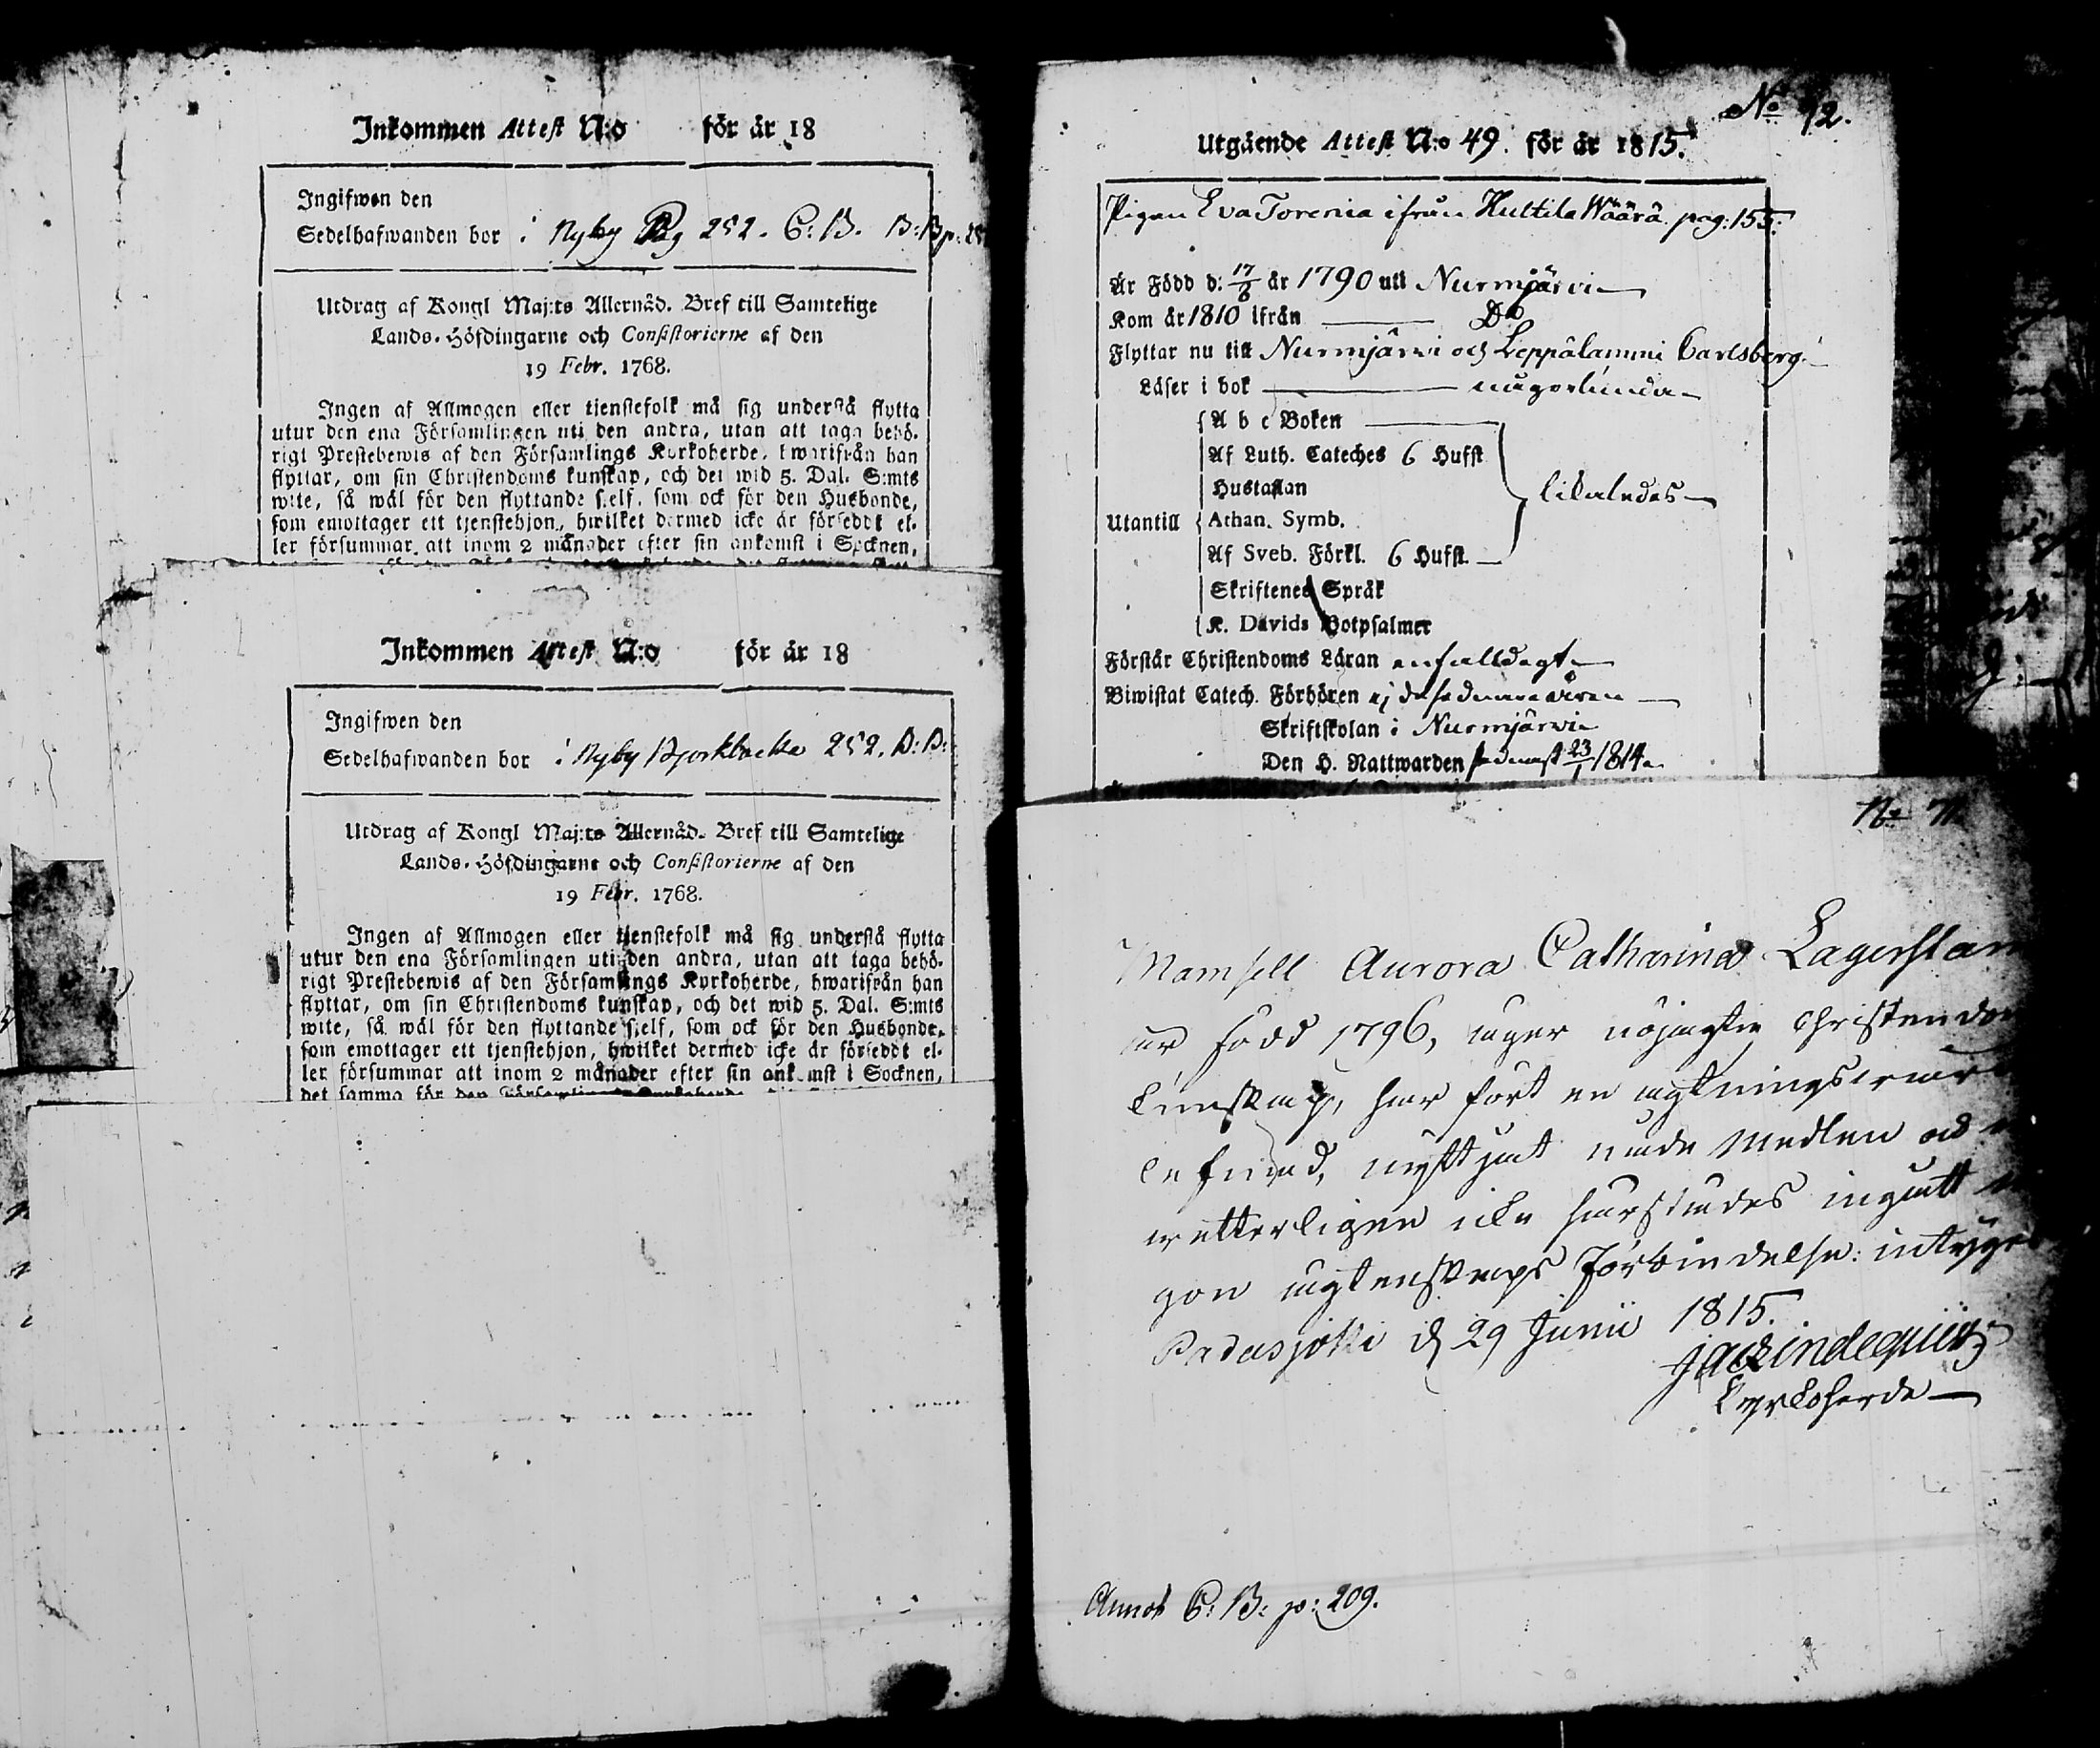 Inkommen Attest N:o för år 18
Ingifwen den
Sedelhafwanden bor i Nyby Pag 252. C:B. B:B p:
Utdrag af Kongl Maj:ts Allernåd. Bref till Samtelige
Lands-Höfdingarne och Consistorierne af den
19 Febr. 1768.
Ingen af Allmogen eller tienstefolk må sig understå flytta
utur den ena Församlingen uti den andra, utan att taga behö-
rigt Prestebewis af den Församlings Kyrkoherde, hwarifrån han
flyttar, om sin Christendoms kunskap, och det wid 5. Dal. S:mts
wite, så wäl för den flyttande sielf, som ock för den Husbonde,
som emottager ett tjenstehjon, hwilket dermed icke är förseddt el-
ler försummar att inom 2 månader efter sin ankomst i Socknen,
Inkommen Attest N:o för år 18
Ingifwen den
Sedelhafwanden bor i Nyby Bjorkbacka 252. B:B:
Utdrag af Kongl Maj:ts Allernåd. Bref till Samtelige
Lands-Höfdingarne och Consistorierne af den
19 Febr. 1768.
Ingen af Allmogen eller tjenstefolk må sig understå flytta
utur den ena Församlingen uti den andra, utan att taga behö-
rigt Prestebewis af den Församlings Kyrkoherde, hwarifrån han
flyttar, om sin Christendoms kunskap, och det wid 5. Dal. S:mts
wite, så wäl för den flyttande sielf, som ock för den Husbonde,
som emottager ett tjenstehjon, hwilket dermed icke är förseddt el-
ler försummar att inom 2 månader efter sin ankomst i Socknen,
det samma för den Församlings Kyrkoherde
No 72.
Utgående Attest N:o 49. för år 1815.
Pigan Eva Torenia ifrån Huttila Wäärä pag: 155.
Är Född d: 17/6 år 1790 uti Nurmjärvi
Kom år 1810 ifrån Do
Flyttar nu till Nurmjärwi och Leppälammi Carlsberg.
Läser i bok någorlunda
A b c Boken
Af Luth. Cateches 6 Hufst
Hustaflan
likaledes
Utantill Athan. Symb.
Af Sveb. Förkl. 6 Hufst.
Skriftenes Språk
K. Davids Botpsalmer
Förstår Christendoms Läran enfalldigt
Biwistat Catech. Förhören ej de sednare åren
Skriftskolan i Nurmjärwi
Den H. Nattwarden sednast 23/1 1814
No 7
Mamsell Aurora Catharina Lagerstam
är född 1796, äger nöjagtig Christendom
kunskap, har fört en agtningswärd
lefnad, nyttjat nåde Medlen och
wetterligen icke härstädes ingått
gon ägtenskaps Förbindelse: intygar
Padasjoki d 29 Junii 1815.
Jac Lindequist
Kyrkoherde
Annot C: B: p: 209.